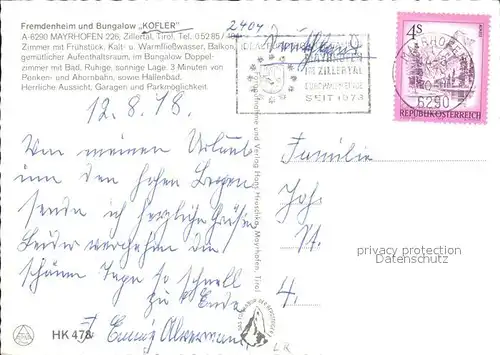 Fremdenheim und Bungalow „KOFLER"
A-6290 MAYRHOFEN 226, Zillertal, Tirol, Tel. 05285/
Zimmer mit Frühstück. Kalt- u. Warmfließwasser, Balkon,
gemütlicher Aufenthaltsraum, im Bungalow Doppel-
zimmer mit Bad. Ruhige, sonnige Lage. 3 Minuten von
Penken- und Ahornbahn, sowie Hallenbad.
Herrliche Aussicht, Garagen und Parkmöglichkeit.
12.8.78.
Von meinen Urlaub
in den hohen Bergen
sende ich herzliche Grüße
Leider vergehen die
schönen Tage so schnell
zu Ende
HK 478
MAYRHOFEN
IM ZILLERTAL
EUROPAGEMEINDE
SEIT 1973
4S
6290
REPUBLIK ÖSTERREICH
und Verlag Hans Hruschka, Mayrhofen, Tirol
Familie
Joh.
St.
4.
privacy protection
Datenschutz